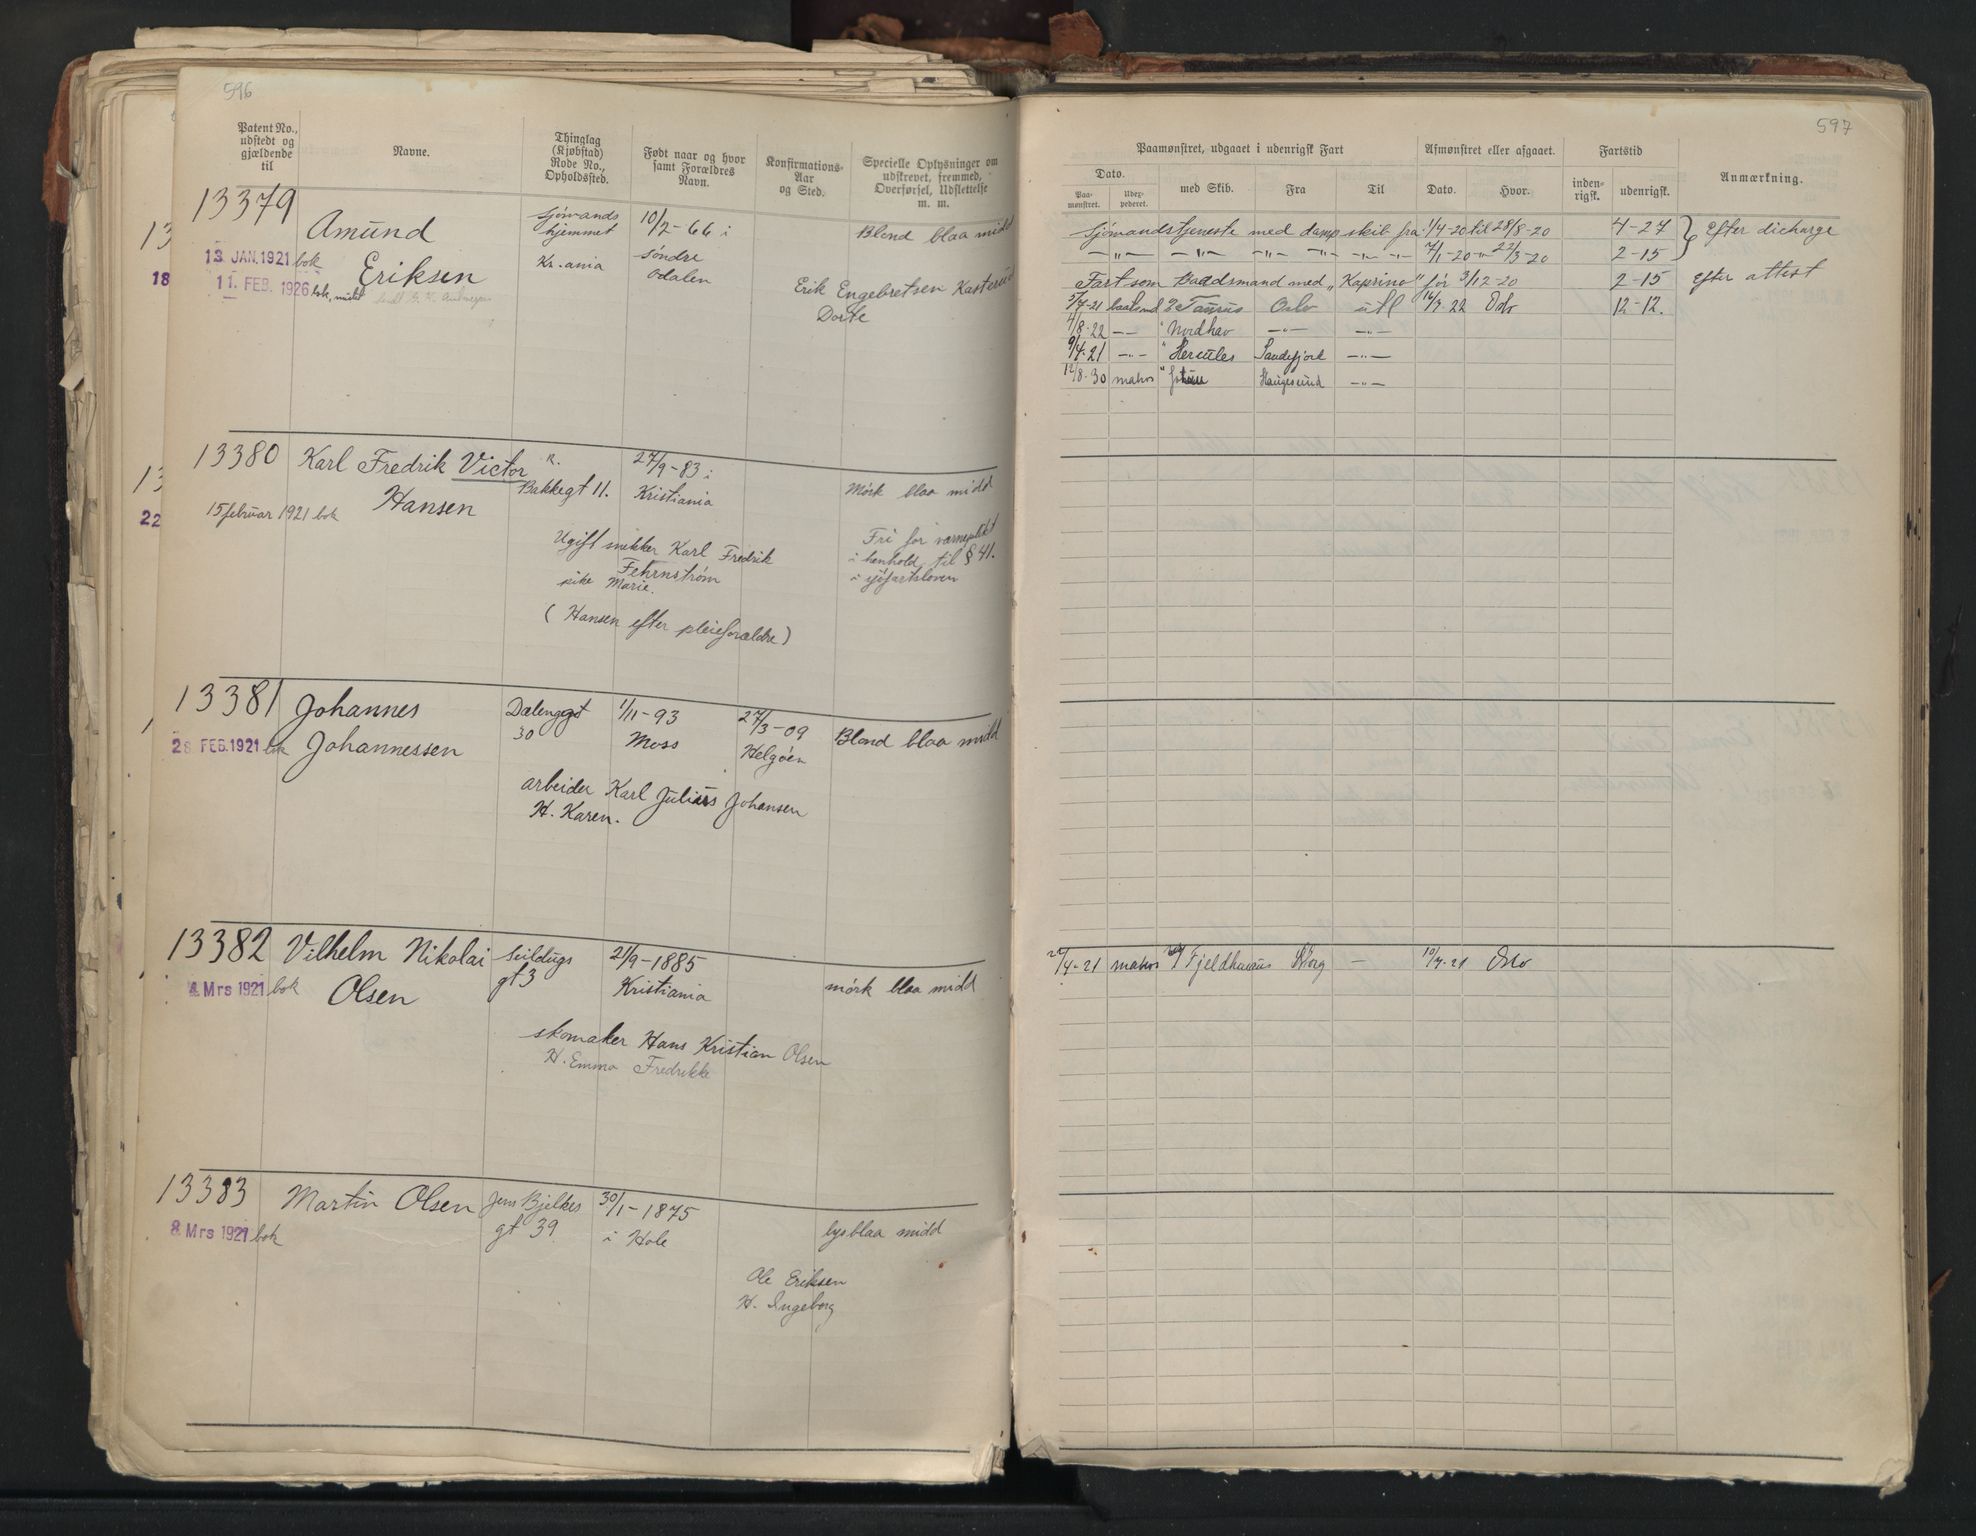 596
Patent No., udstedt og gjældende til
Navne.
Thinglag (Kjøbstad) Rode No., Opholdssted.
Født naar og hvor samt Forældres Navn.
Konfirmations-Aar og Sted.
Specielle Oplysninger om udskrevet, fremmed, Overførsel, Udslettelse m. m.
13379
Amund
Eriksen
13. JAN. 1921 bok
11. FEB. 1926 bok, mistet
Sjömands
hjemmet
Kr.ania
10/2-66 i
Söndre
Odalen
Blond blaa midd
Erik Engebretsen
Dorte
13380
Karl Fredrik Victor
Hansen
15 februar 1921 bok
R.
Bakkegt 11.
27/9-83 i
Kristiania
Mörk blaa midd
Ugift snekker Karl Fredrik
Fehrnström
pike Marie.
(Hansen efter pleieforældre)
Fri for værneplikt
i henhold til § 41.
i sjöfartsloven
13381
Johannes
Johannessen
28 FEB. 1921 bok
Dælenggt
30
1/11-93
Moss
27/3-09
Helgöen
Blond blaa midd
arbeider Karl Julius Johansen
H. Karen.
13382
Vilhelm Nikolai
Olsen
4 Mrs 1921 bok
Seildugs
gt 3
21/9-1885
Kristiania
mörk blaa midd
skomaker Hans Kristian Olsen
H. Emma Fredrikke
13383
Martin Olsen
8 Mrs 1921 bok
Jens Bjelkes
gt 39
30/1-1875
i Hole
lysblaa midd
Ole Eriksen
H. Ingeborg
597
Paamønstret, udgaaet i udenrigsk Fart
Afmønstret eller afgaaet.
Fartstid
Anmærkning.
Dato.
med Skib.
Fra
Til
Dato.
Hvor.
inden-rigsk.
udenrigsk.
Paa-mønstret.
Sjömandstjeneste med dampskib fra 1/4-20 til 28/8-20 4-27 Efter dicharge
-"- -"- -"- -"- -"- -"- 7/1-20 -"- 22/3-20 2-15
Fart som Baadsmand med "Kaprino" før 3/12-20 2-15 Efter attest
5/7-21 baatsmd Taurus Oslo utl 16/7 22 Oslo 12-12.
4/8-22 -"- " Nordhav -"- -"-
9/4-21 -"- " Hercules Sandefjord -"-
12/8-30 matros " Haugesund -"-
20/4-21 matros Fjeldhuus - 10/7-21 Oslo